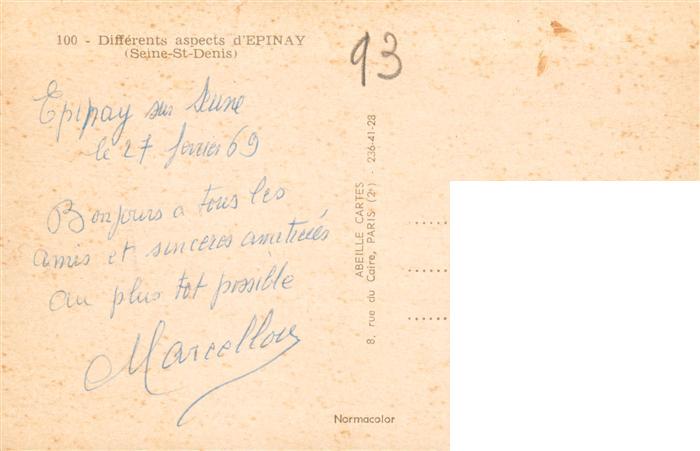 100 - Différents aspects d'EPINAY
(Seine-St-Denis)
93
Epinay sur Seine
le 27 fevrier 69
Bonjours a tous les
amis et sinceres amitiés
au plus tot possible
Marcellou
ABEILLE CARTES
8, rue du Caire, PARIS (2e) - 236-41-28
Normacolor